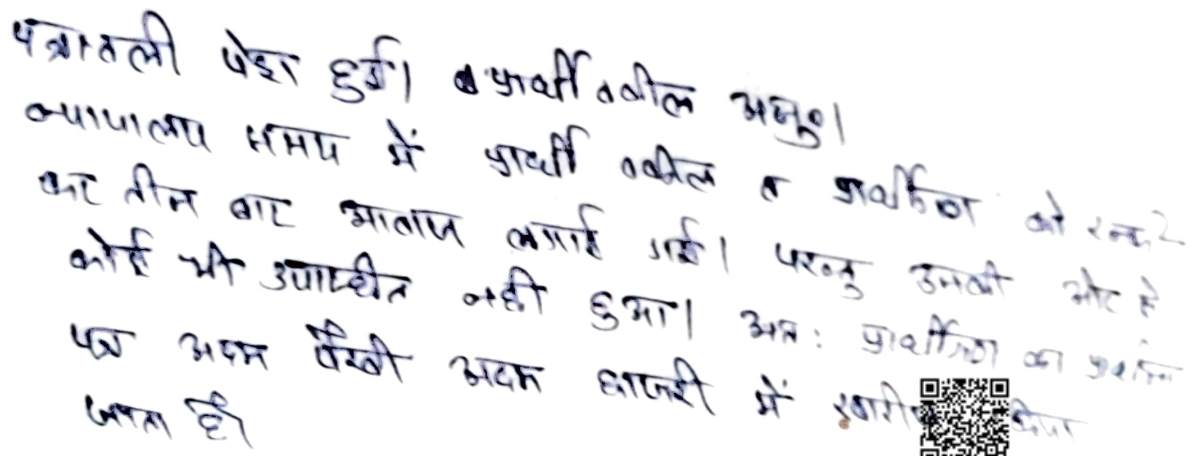 पत्रावली पेश हुई। प्रार्थी वकील अनु०।
न्यायालय समय में प्रार्थी वकील व प्रार्थीगण को रूक२
कर तीन बार आवाज लगाई गई। परन्तु उनकी ओर से
कोई भी उपस्थित नहीं हुआ। अतः प्रार्थीगण का प्रार्थना
पत्र अदम पैरवी अदम हाजरी में खारीज किया
जाता है।